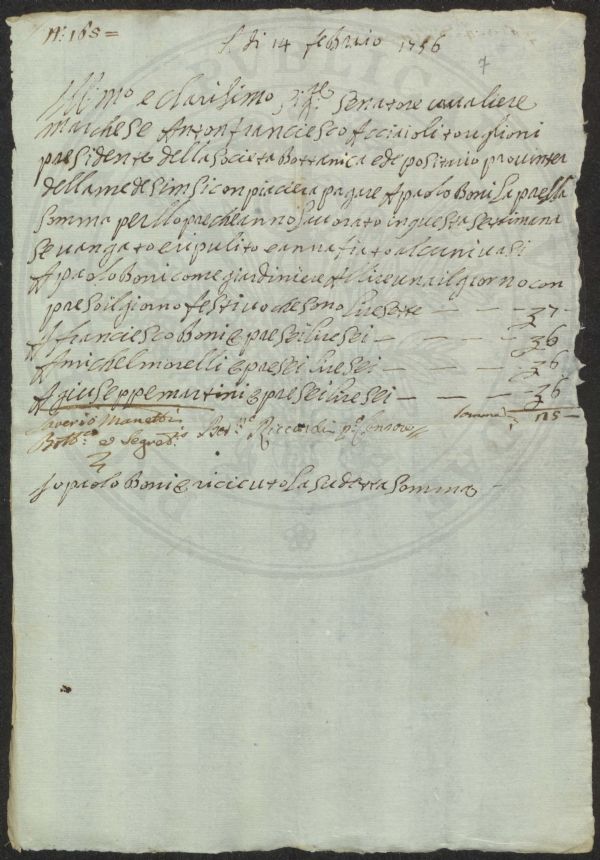 N: 165 =
A di 14 febraio 1756
7
Ill:mo e clarisimo Sig:re Senatore cavaliere
Marchese Antonfranciesco Acciaioli toriglioni
presidente della Societa Bottanica e de positario provintera
della medesim si conpiaciera pagare A paolo Boni la presta
somma per llopre che anno lavorato in questa setimana
se vangato e ripulito e annafiato alcuni vasi
A paolo Boni come giardiniere A lire una il giorno con
preso il giorno festivo che sono lire sette — — — 7 -
A franciesco Boni opre sei lire sei — — — 6
A michel morelli opre sei lire sei — — — 6
A giuseppe martini opre sei lire sei — — — 6
Saverio Manetti Somma 125 —
Bott:co e Segret:io Ber:do Riccardi p:o Censore
Io paolo Boni o riceuto la sudetta somma
PVBLICA